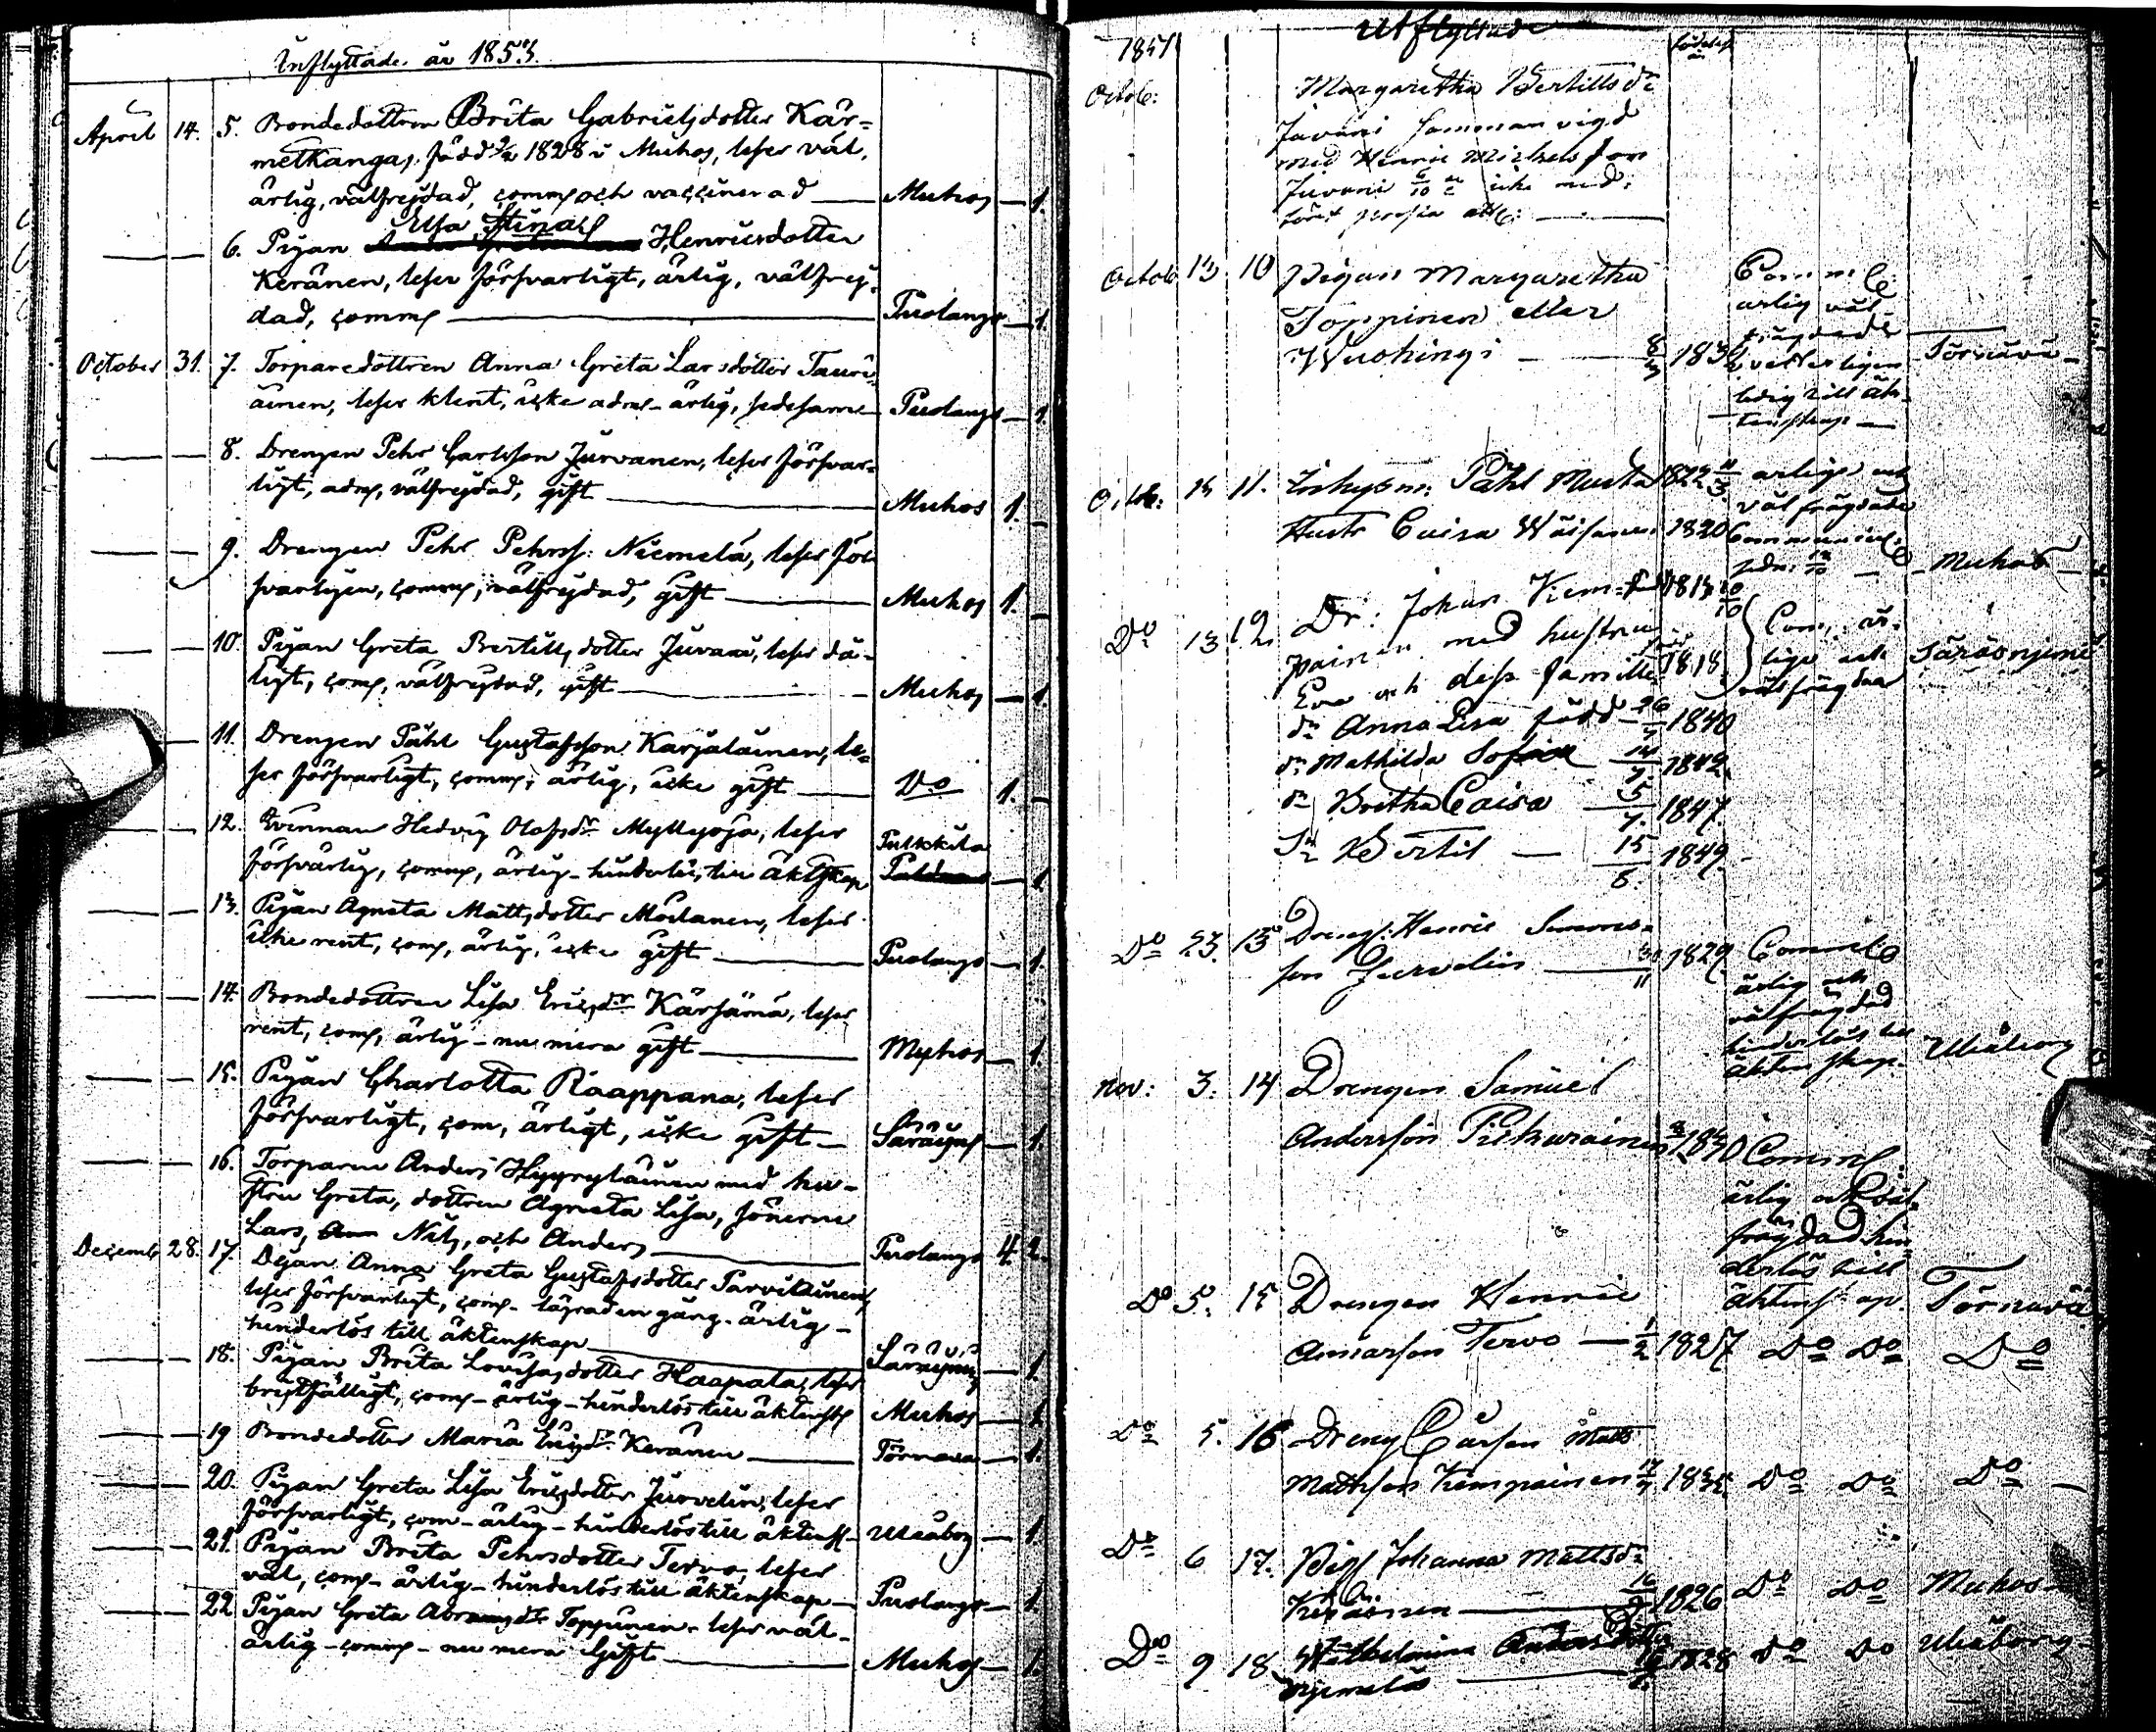 Inflyttade år 1853.
April 14. 5. Bondedottren Brita Gabrielsdotter Kär-
metkangas, född 9/2 1828 i Muhos, läser väl,
ärlig, välfrejdad, comm. och vaccinerad — Muhos — 1.
Elsa Stina
6. Pigan Henricsdotter
Keränen, läser försvarligt, ärlig, välfrej-
dad, comm. — Puolango — 1.
October 31. 7. Torparedottren Anna Greta Larsdotter Tauri-
ainen, läser klent, icke adm. ärlig, sedesam — Puolango — 1.
8. Drengen Pehr Carlsson Jurvanen, läser försvar-
ligt, adm, välfrejdad, gift — Muhos 1.
9. Drengen Pehr Pehrss: Niemelä, läser för-
svarligen, comm, välfrejdad, gift — Muhos 1.
10. Pigan Greta Bertilsdotter Juvani, läser då-
ligt, com, välfrejdad, gift — Muhos — 1
11. Drengen Påhl Gustafsson Karjalainen, lä-
ser försvarligt, comm, ärlig, icke gift — Do 1.
12. Qvinnan Hedvig Olofsdr Myllyoja, läser Pulkkila
försvarlig, comm, ärlig - hinderlös till äktskap — 1.
13. Pigan Agneta Mattsdotter Moilanen, läser
icke rent, com, ärlig, icke gift — Puolango — 1.
14. Bondedottren Lisa Ericsdr Kärsämä, läser
rent, com, ärlig - nu mera gift — Muhos — 1.
15. Pigan Charlotta Raappana, läser
försvarligt, com, ärligt, icke gift — Säräisn — 1.
16. Torparen Anders Hyyryläinen med hu-
stru Greta, dottren Agneta Lisa, sönerne
Lars, Nils, och Anders — Puolango 4. 2.
Decemb 28. 17. Pigan Anna Greta Gustafsdotter Parviainen,
läser försvarligt, com - lägrad en gång - ärlig -
hinderlös till äktenskap — Säräisn — 1
18. Pigan Brita Lovisasdotter Haapala, läser
bristfälligt, com - ärlig - hinderlös till äktensk — Muhos — 1.
19 Bondedotter Maria Ericsdr Keränen — Törnävä — 1.
20. Pigan Greta Lisa Ericsdotter Jurvelin, läser
försvarligt, com - ärlig - hinderlös till äktensk — Uleåborg — 1.
21. Pigan Brita Pehrsdotter Tervo, läser
väl, com - ärlig - hinderlös till äktenskap — Puolango — 1.
22 Pigan Greta Abramsdr Toppinen - läser väl -
ärlig - comm - nu mera Gift — Muhos — 1.
1851 Utflyttade
Octob: Margaretha Bertillsdr
Juvani samman vigd
med Henric Michelsson
Juvani 6/10
Octob 13 10 Pigan Margaretha Comm.
Toppinen eller ärlig väl
Wuohingi — 8/3 183 — Törnävä —
ledig till äk-
tenskap —
Octob: 11. Påhl Musta 1822 11/3 ärlige och
välfrägdade
Hustr Caisa Wäisänen 1820
— Muhos —
Do 13 12. Dr: Johan Kem-
painen med hustru
Eva och dess familie 1818. välfrägdade Säräisniemi
dr Anna Lisa född 26/4 1840
dr Mathilda Sofia 14/7 1842
dr Britha Caisa 5/7. 1847.
Sn Bertil — 15/6. 1849.
Do 23. 13 Dreng: Henric Simons-
son Jurvelin — 30/11 1829 Comm.
ärlig och
välfrägdad
hinderlös till
äktenskap. Uleåborg
Nov: 3. 14 Drengen Samuel
Andersson Pitkärainen 1830 Comm.
ärlig och väl-
frägdad hin-
derlös till
äktenskap Törnävä
Do 5. 15 Drengen Henric
Tervo — 1/2 1827 Do Do Do
Do 5. 16 Dreng Matts
Mathsson Kempainen Do Do Do
Do 6 17. Pig Johanna Mattsdr
Keräinen — 16/9 1826 Do Do Muhos
Do 9 18 Wilhelmina Andersdotter
Niemelä — 1828 Do Do Uleåborg